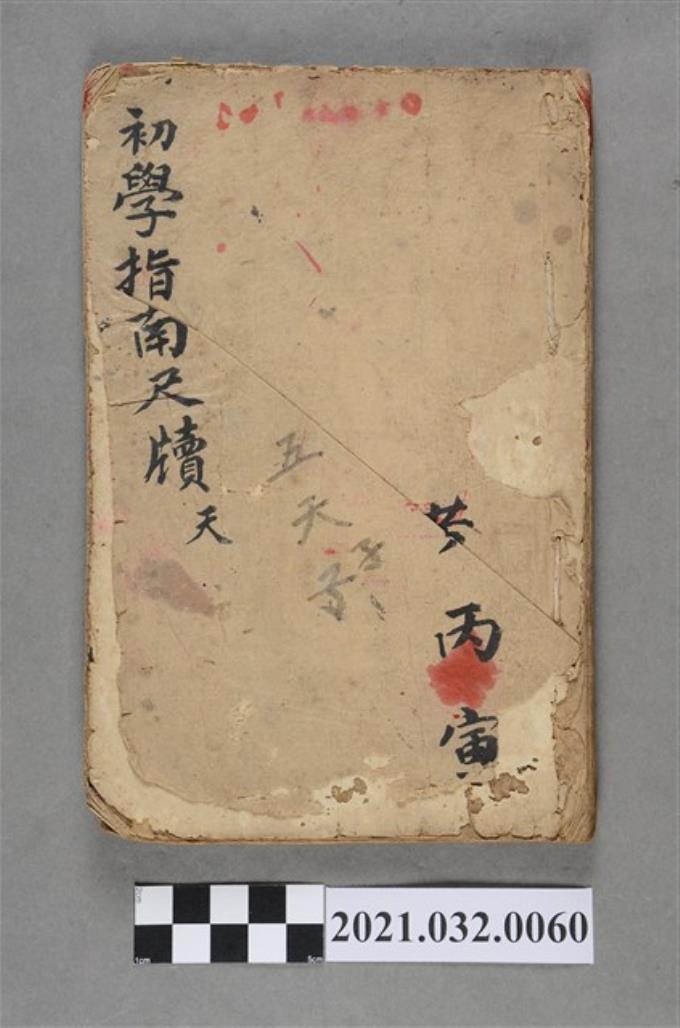 初學指南尺牘 天
五天
丙寅
2021.032.0060
1cm
5cm